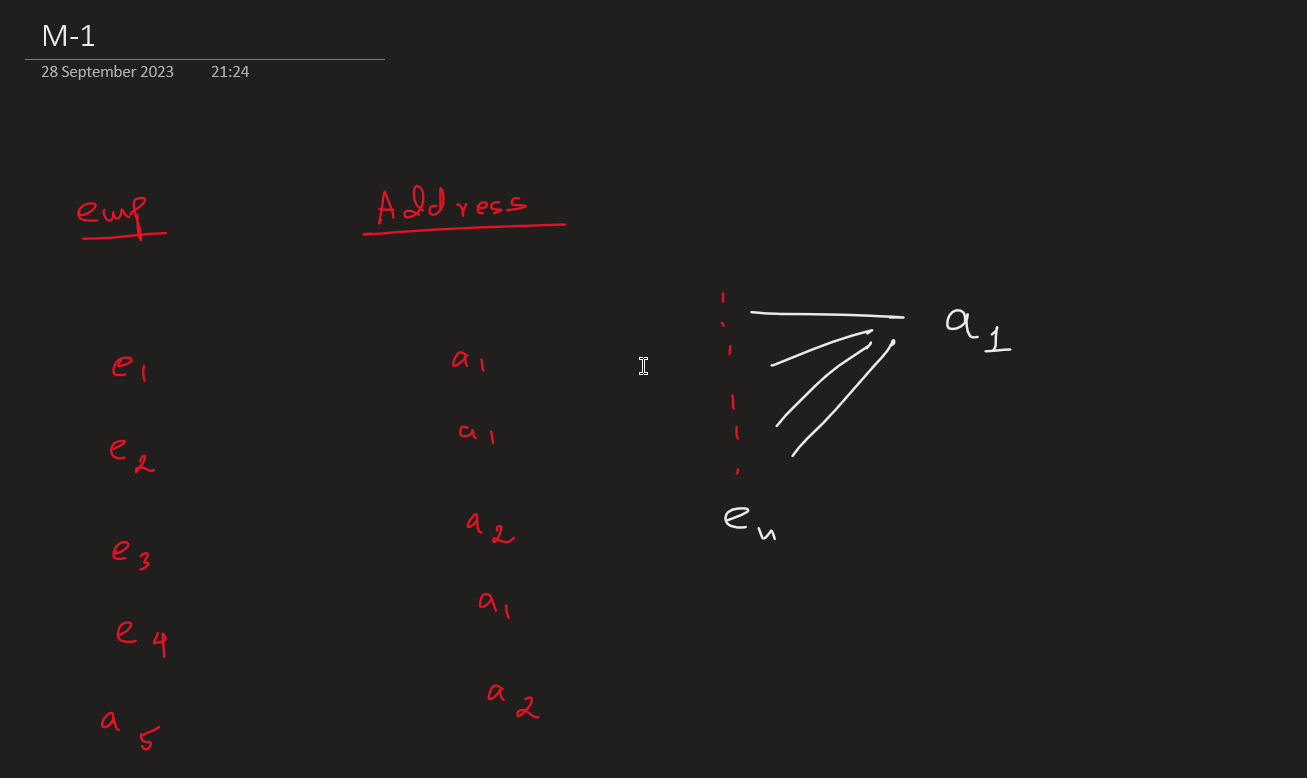 M-1
28 September 2023 21:24
emp Address
a1
e1 a1
e2 a1
e3 a2
en
e4 a1
a5 a2